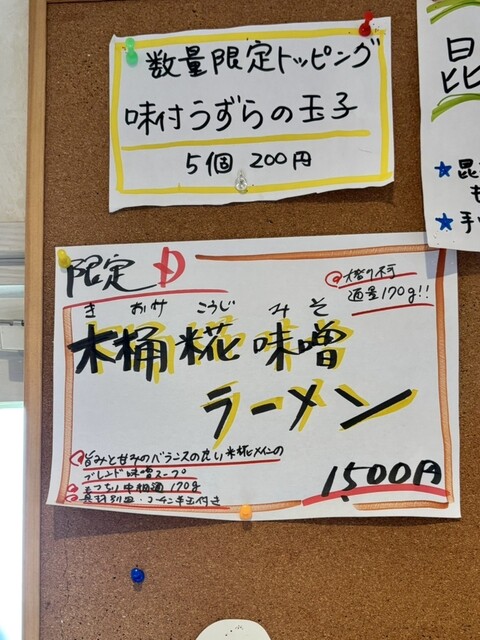 数量限定トッピング
味付うずらの玉子
5個 200円
限定 D
大盛り不可
麺量170g!!
き おけ こうじ みそ
木桶糀味噌
ラーメン
旨みと甘みのバランスの良い米糀メインの
ブレンド味噌スープ
中細麺 170g
具材別皿・コーチン半玉付き
1,500円
昆
★昆
も
★手